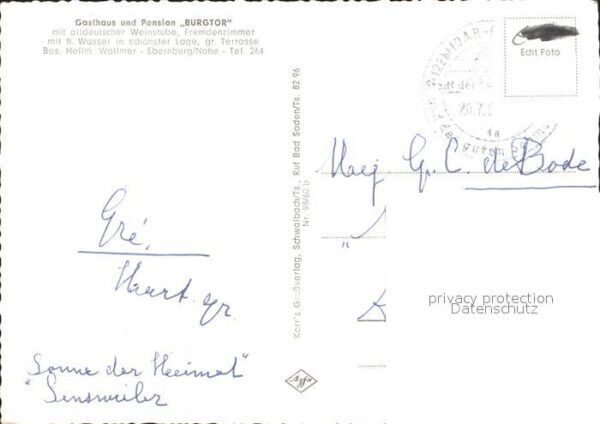 Gasthaus und Pension „BURGTOR"
mit altdeutscher Weinstube, Fremdenzimmer
mit fl. Wasser in schönster Lage, gr. Terrasse
Bes. Hellm. Wallmer - Ebernburg/Nahe - Tel. 264
Echt Foto
guten
1a
Karr's Großverlag, Schwalbach/Ts., Ruf Bad Soden/Ts. 82 96
Nr. 98/60 b
G. C. de Bode
Gré,
Hart. gr.
Sonne der Heimat"
"Sensweiler
privacy protection
Datenschutz